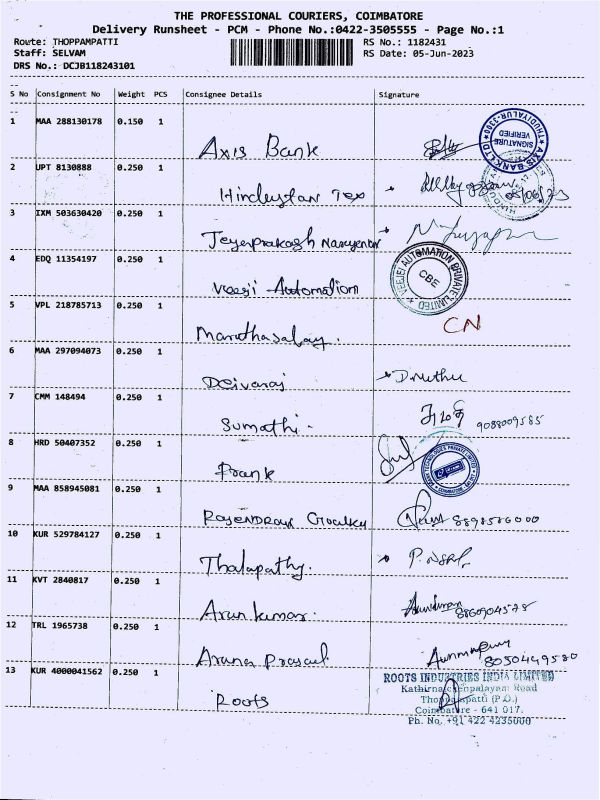 THE PROFESSIONAL COURIERS, COIMBATORE
Delivery Runsheet - PCM - Phone No.:0422-3505555 - Page No.:1
Route: THOPPAMPATTI
RS No.: 1182431
Staff: SELVAM
RS Date: 05-Jun-2023
DRS No.: DCJB118243101
S No Consignment No Weight PCS Consignee Details Signature
1 MAA 288130178 0.150 1
Axis Bank
AXIS BANK LTD
SIGNATURE VERIFIED
2 UPT 8130888 0.250 1
Hindustan Tex
05/06/23
3 IXM 503630420 0.250 1
Jeyaprakash Narayenan
4 EDQ 11354197 0.250 1
Veeji Automation
VEEJEI AUTOMATION PRIVATE LIMITED
CBE
5 VPL 218785713 0.250 1
Marudhasalay.
CN
6 MAA 297094073 0.250 1
Deivaraj
D.Muthu
7 CMM 148494 0.250 1
Sumathi.
9088009585
8 HRD 50407352 0.250 1
Prank
9 MAA 858945081 0.250 1
Rajendran
10 KUR 529784127 0.250 1
Thalapathy.
11 KVT 2840817 0.250 1
Arun kumar.
12 TRL 1965738 0.250 1
Aruna Prasad
8050449580
13 KUR 4000041562 0.250 1
Roots
ROOTS INDUSTRIES INDIA LIMITED
Road
Thoppampatti (P.O.)
Coimbatore - 641 017.
Ph. No. +91 422 4235000